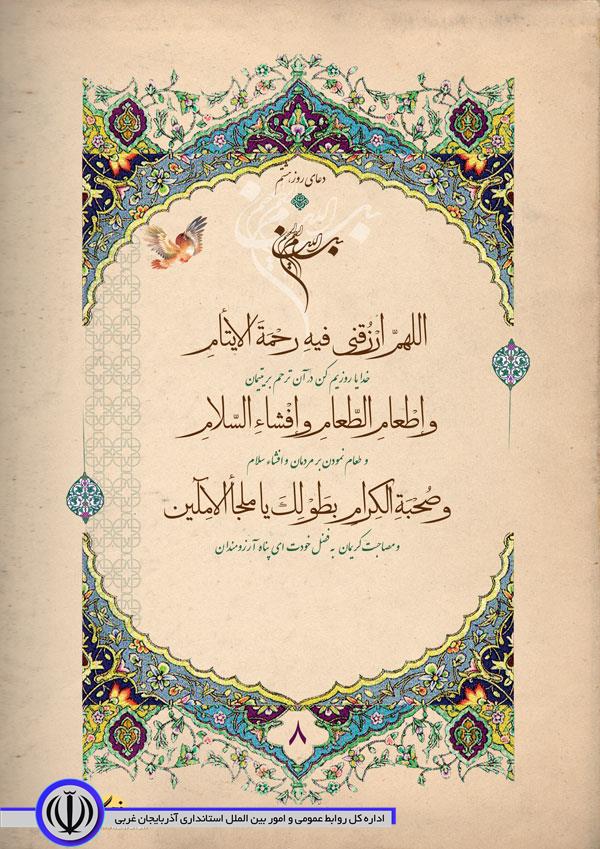 دعای روز هشتم
بسم الله الرحمن الرحیم
اللهمّ ارْزُقنی فیهِ رحمَةَ الایتامِ
خدایا روزیم کن در آن ترحم بر یتیمان
وإطْعامِ الطّعامِ وإفْشاءِ السّلامِ
و طعام نمودن بر مردمان و افشاء سلام
وصُحْبَةِ الکِرامِ بِطَوْلِکَ یا ملجأ الآمِلین
و مصاحبت کریمان به فضل خودت ای پناه آرزومندان
۸
اداره کل روابط عمومی و امور بین الملل استانداری آذربایجان غربی